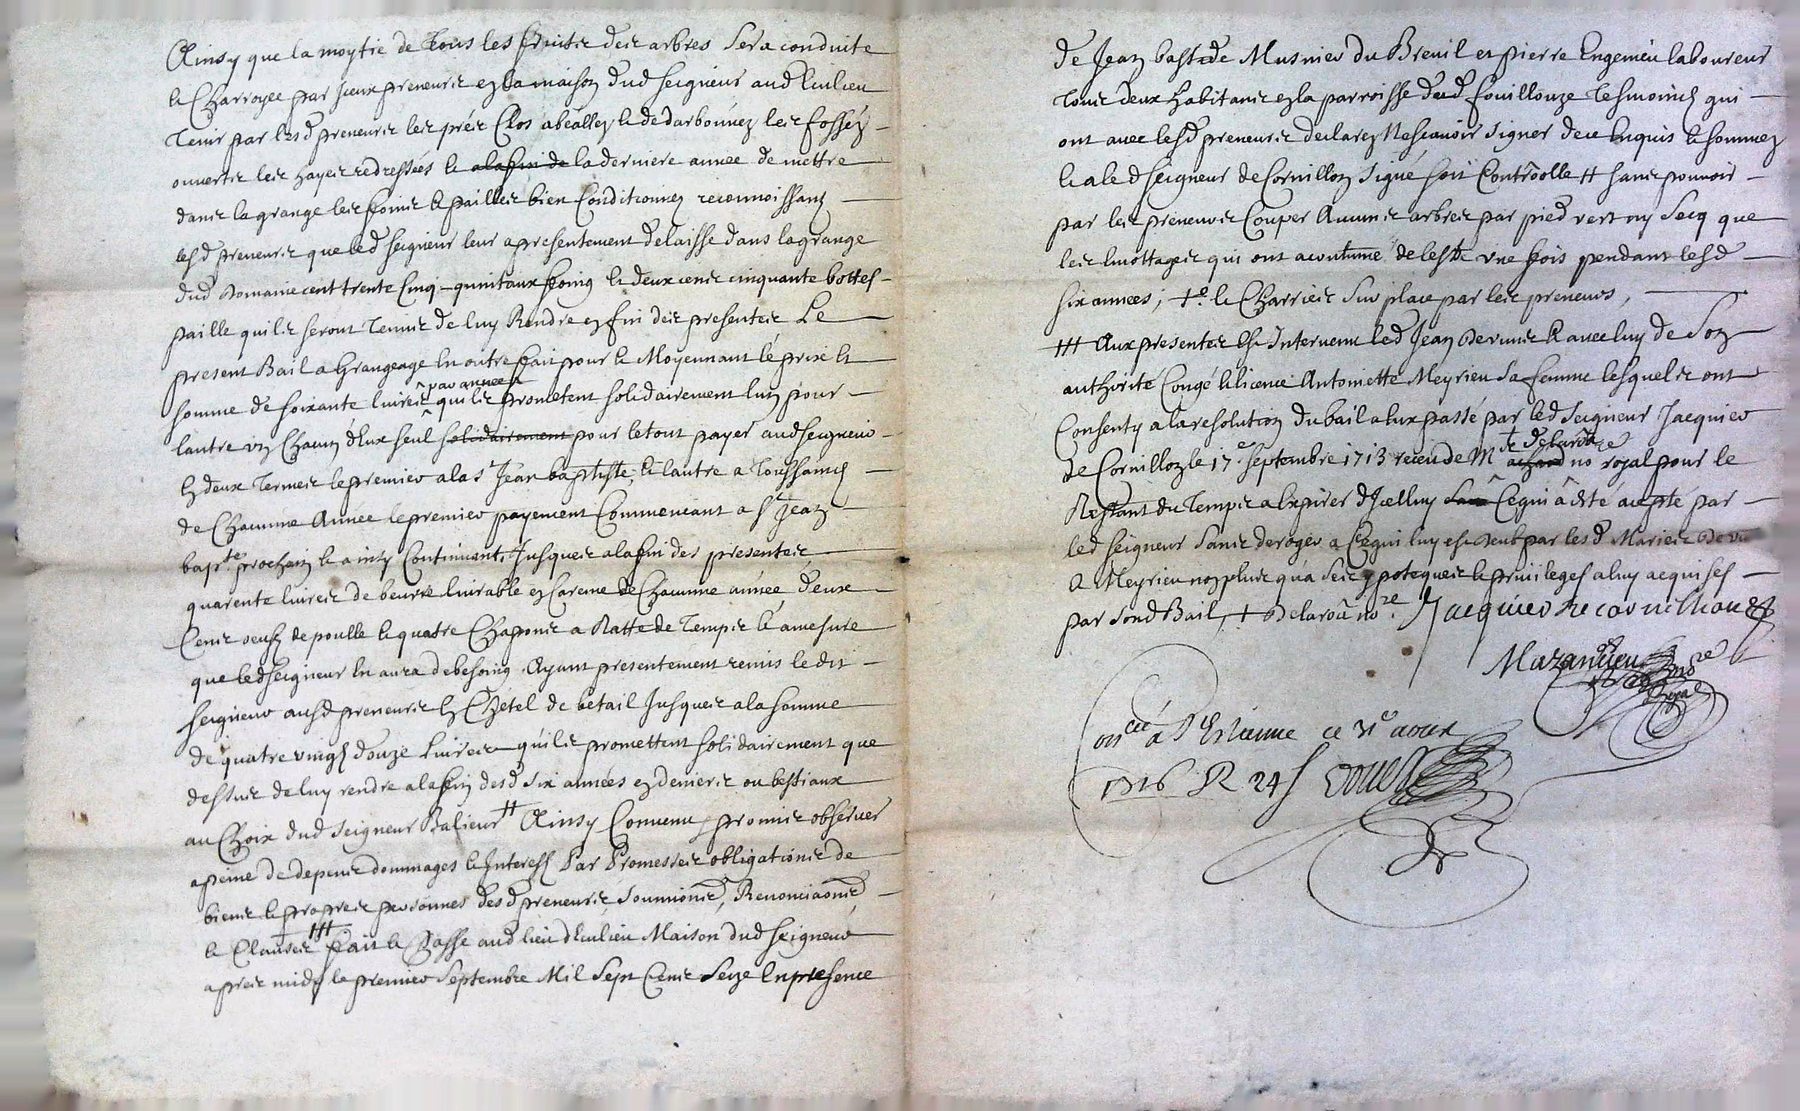 Ainsy que la moytié de tous les fruitz des arbres sera conduite
& Charroyee par iceux preneurs en la maison dud seigneur aud Eculieu
Tenir par lesd preneurs les prés Clos abeallez & de darbounez les fossez
ouvertz les hayes redressées & a la fin de la derniere annee de mettre
dans la grange les foins & pailles bien Conditionnez reconnoissans
lesd preneurs que led seigneur leur a presentement delaissé dans la grange
dud Domaine cent trente Cinq quintaux foing & deux cens cinquante bottes
paille qu'ils seront Tenus de luy Rendre en fin des presentes Le
present Bail a Grangeage en outre fait pour & Moyennant le prix &
par année
somme de soixante livres qu'ils prometent solidairement l'un pour
lautre un Chacun d'Eux seul solidairement pour le tout payer aud seigneur
En deux Termes le premier a la st Jean baptiste, & lautre a Toussaincts
de Chacune Année le premier payement Commencant a st Jean
bapte prochain & ainsy Continuant Jusques a la fin des presentes
quarente livres de beurre livrable en Careme de Chacune année deux
Cens oeufz de poulle & quatre Chapons a Ratte de Temps & a mesure
que led seigneur En aura de besoing Ayant presentement remis le dit
seigneur ausd preneurs En Chetel de betail Jusques a la somme
de quatre vingt douze livres qu'ils promettent solidairement que
dessus de luy rendre a la fin desd six années en deniers ou bestiaux
au Choix dud seigneur Balieur # Ainsy Convenu, promis observer
a peine de depens dommages & Interestz Par Promesses obligations de
biens & propres personnes desd preneurs, soumions, Renonciaons
& Clauses ### fait & Passé aud lieu d'Eculieu Maison dud seigneur
apres midy le premier Septembre Mil Sept Cens Seize En presence
de Jean baste de Musnier du Breuil et pierre Engenieu laboureur
Tous deux habitans en la parroisse dud fouillouze Tesmoincts qui
ont avec lesd preneurs declarez Ne scavoir signer de ce Enquis & sommez
& a led seigneur de Cornillon signé soit Controolle # sans pouvoir
par les preneurs Couper Aucuns arbres par pied vert ny Secq que
les Emottages qui ont acoutumé de lestre une fois pendant lesd
six années, + & Charriés sur place par les preneurs,
### Aux presentes Est Intervenu led Jean & avec luy de Son
authorité Congé & licence Antoinette Meyrieu sa femme lesquels ont
Consenty a la resolution du bail a Eux passé par led seigneur Jacquier
de Cornillon le 17e septembre 1713 receu de Mte delarôa achard no royal pour le
Restant du Temps a Expirer d'Icelluy Ce qui a êté accepté par
led seigneur sans deroger a Ce qui luy est deub par lesd Mariés
& Meyrieu non plus qu'a ses ypoteques & privileges a luy acquises
par sond Bail, + Delaroâ nore Jacquier de cornilhon
Mazandieu nore
Royal
onllé a St Etienne ce
1716 R 24 s